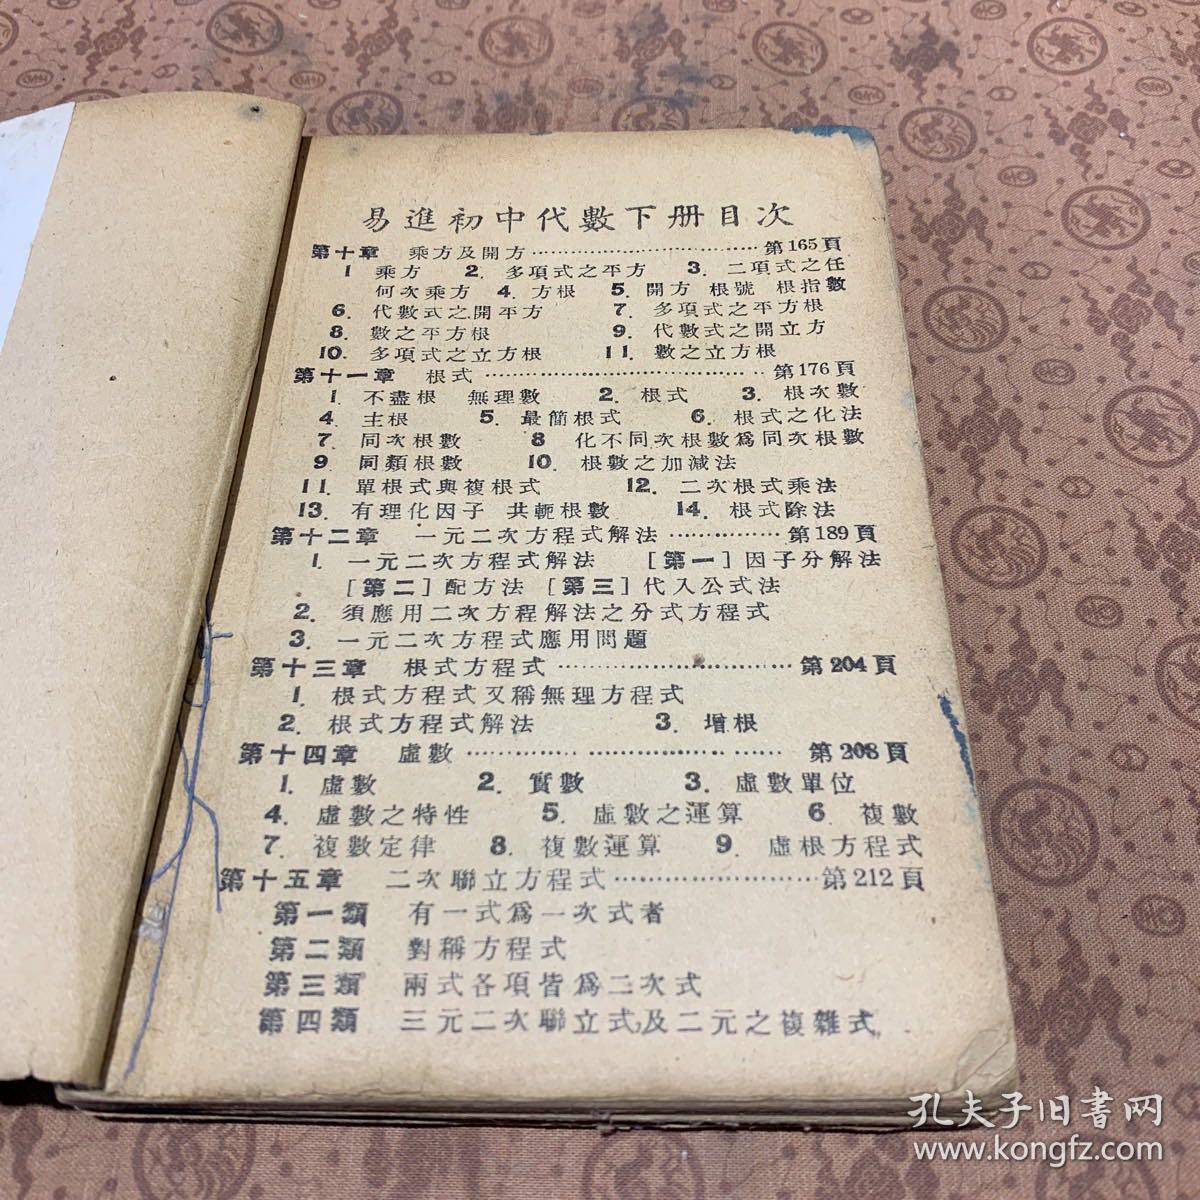 易進初中代數下册目次
第十章 乘方及開方……………………第165頁
1 乘方 2. 多項式之平方 3. 二項式之任
何次乘方 4. 方根 5. 開方 根號 根指數
6. 代數式之開平方 7. 多項式之平方根
8. 數之平方根 9. 代數式之開立方
10. 多項式之立方根 11. 數之立方根
第十一章 根式……………………第176頁
1. 不盡根 無理數 2. 根式 3. 根次數
4. 主根 5. 最簡根式 6. 根式之化法
7. 同次根數 8 化不同次根數爲同次根數
9. 同類根數 10. 根數之加減法
11. 單根式與複根式 12. 二次根式乘法
13. 有理化因子 共軛根數 14. 根式除法
第十二章 一元二次方程式解法……………第189頁
1. 一元二次方程式解法 [第一]因子分解法
[第二]配方法 [第三]代入公式法
2. 須應用二次方程解法之分式方程式
3. 一元二次方程式應用問題
第十三章 根式方程式……………………第204頁
1. 根式方程式又稱無理方程式
2. 根式方程式解法 3. 增根
第十四章 虛數……………………第208頁
1. 虛數 2. 實數 3. 虛數單位
4. 虛數之特性 5. 虛數之運算 6. 複數
7. 複數定律 8. 複數運算 9. 虛根方程式
第十五章 二次聯立方程式……………………第212頁
第一類 有一式爲一次式者
第二類 對稱方程式
第三類 兩式各項皆爲二次式
第四類 三元二次聯立式及二元之複雜式
孔夫子旧書网
www.kongfz.com